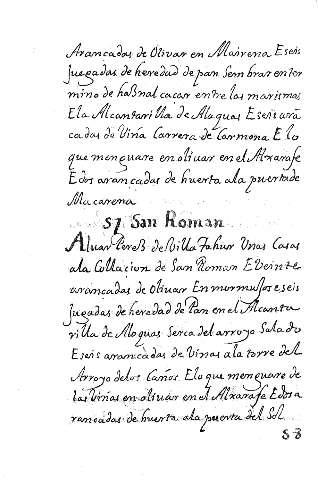 Arancadas de Olivar en Mairena E seis
Jugadas de heredad de pan Sembrar en ter
mino de haßnalcacar entre las marismas
E la Alcantarilla de Aloquas E seis arã
cadas de Viña Carrera de Carmona E lo
que menguare en olivar en el Alxarafe
E dos arancadas de huerta ala puerta de
Macarena
57 San Roman
Alvar Pereß de Villa Tahur Unas Casas
ala Collacion de San Roman E Veinte
arancadas de Olivar En murmujos e seis
Jugadas de heredad de Pan en el Alcanta
rilla de Aloquas Serca del arroyo Salado
E seis arancadas de Viñas ala torre del
Arroyo de los Caños. E lo que menguare de
las Viñas en olivar en el Alxarafe E dos a
rancadas de huerta ala puerta del Sol
58